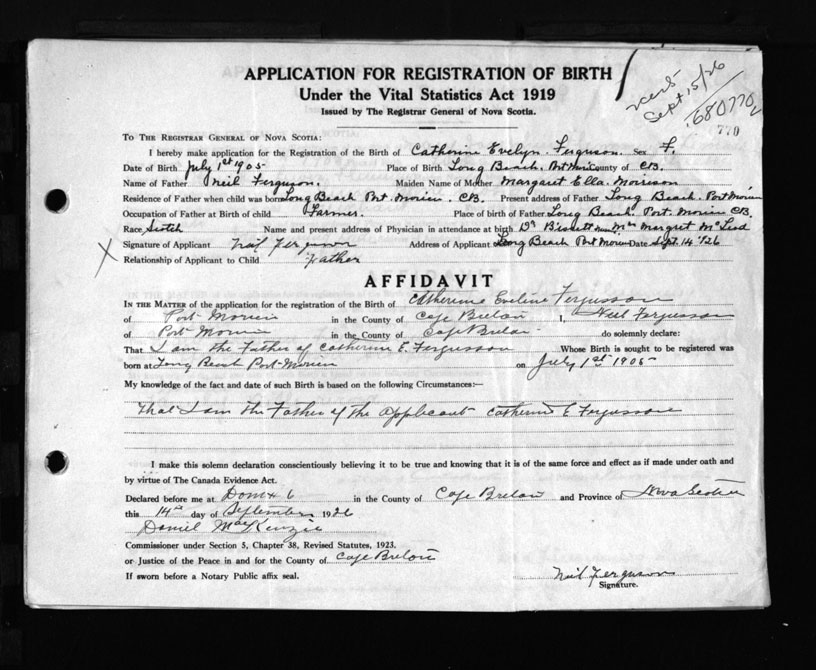 APPLICATION FOR REGISTRATION OF BIRTH
Under the Vital Statistics Act 1919
Issued by The Registrar General of Nova Scotia.
Sept 15/26
680770
770
TO THE REGISTRAR GENERAL OF NOVA SCOTIA:
I hereby make application for the Registration of the Birth of Catherine Evelyn Ferguson. Sex F.
Date of Birth July 1st 1905 Place of Birth Long Beach. Port Morien County of C.B.
Name of Father Neil Ferguson. Maiden Name of Mother Margaret Ella Morrison
Residence of Father when child was born Long Beach Port Morien. C.B. Present address of Father Long Beach. Port Morien
Occupation of Father at Birth of child Farmer. Place of birth of Father Long Beach. Port. Morien C.B.
Race Scotch Name and present address of Physician in attendance at birth Dr Bissett Mrs Margret McLeod
X Signature of Applicant Neil Ferguson Address of Applicant Long Beach Port Morien Date Sept. 14 '26
Relationship of Applicant to Child Father
AFFIDAVIT
IN THE MATTER of the application for the registration of the Birth of Catherine Eveline Fergusson
of Port Morien in the County of Cape Breton I, Neil Fergusson
of Port Morien in the County of Cape Breton do solemnly declare:
That I am the Father of Catherine E. Fergusson Whose Birth is sought to be registered was
born at Long Beach Port-Morien on July 1st 1905
My knowledge of the fact and date of such Birth is based on the following Circumstances:—
That I am the Father of the applicant Catherine E Fergusson
I make this solemn declaration conscientiously believing it to be true and knowing that it is of the same force and effect as if made under oath and
by virtue of The Canada Evidence Act.
Declared before me at Dom # 6 in the County of Cape Breton and Province of Nova Scotia
this 14th day of September 1926
Daniel MacKenzie
Commissioner under Section 5, Chapter 38, Revised Statutes, 1923.
or Justice of the Peace in and for the County of Cape Breton
If sworn before a Notary Public affix seal.
Neil Ferguson
Signature.